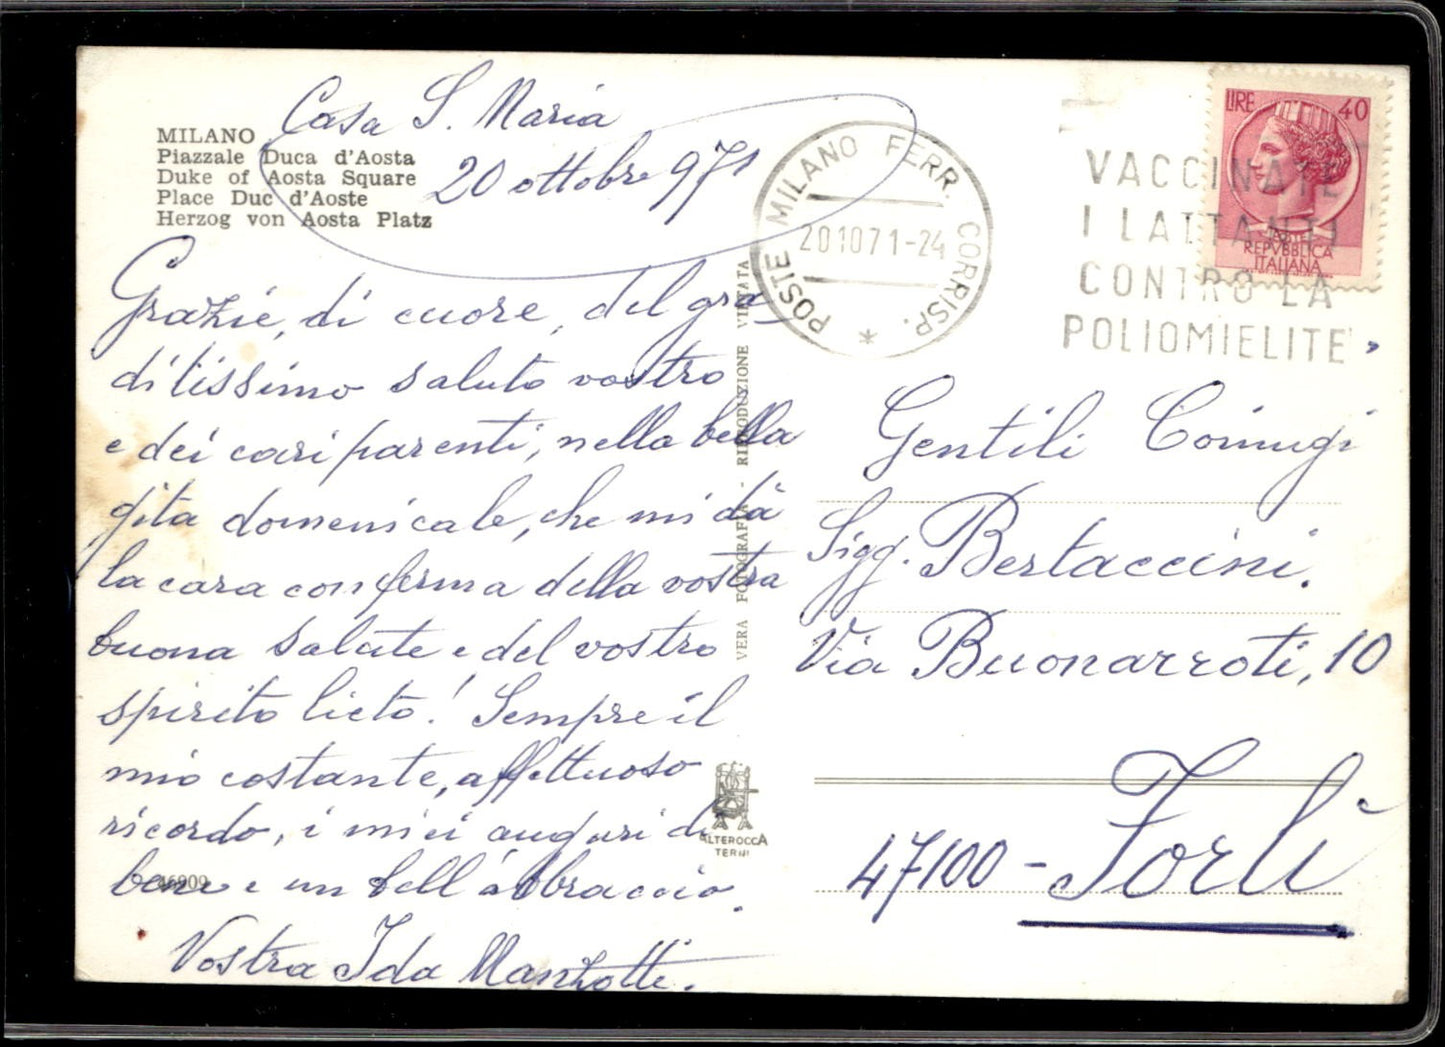 MILANO
Piazzale Duca d'Aosta
Duke of Aosta Square
Place Duc d'Aoste
Herzog von Aosta Platz
Casa S. Maria
20 ottobre 971
Grazie, di cuore, del gra
ditissimo saluto vostro
e dei cari parenti, nella bella
gita domenicale, che mi dà
la cara conferma della vostra
buona salute e del vostro
spirito lieto! Sempre il
mio costante, affettuoso
ricordo, i miei auguri di
bene e un bell'abbraccio.
Vostra Ida Manzotti.
VERA FOTOGRAFIA - RIPRODUZIONE VIETATA
ALTEROCCA
TERNI
POSTE MILANO FERR. CORRISP. *
201071-24
VACCINATE
I LATTANTI
CONTRO LA
POLIOMIELITE
LIRE 40
POSTE
REPVBBLICA
ITALIANA
Gentili Coniugi
Sigg. Bertaccini.
Via Buonarroti, 10
47100 - Forlì